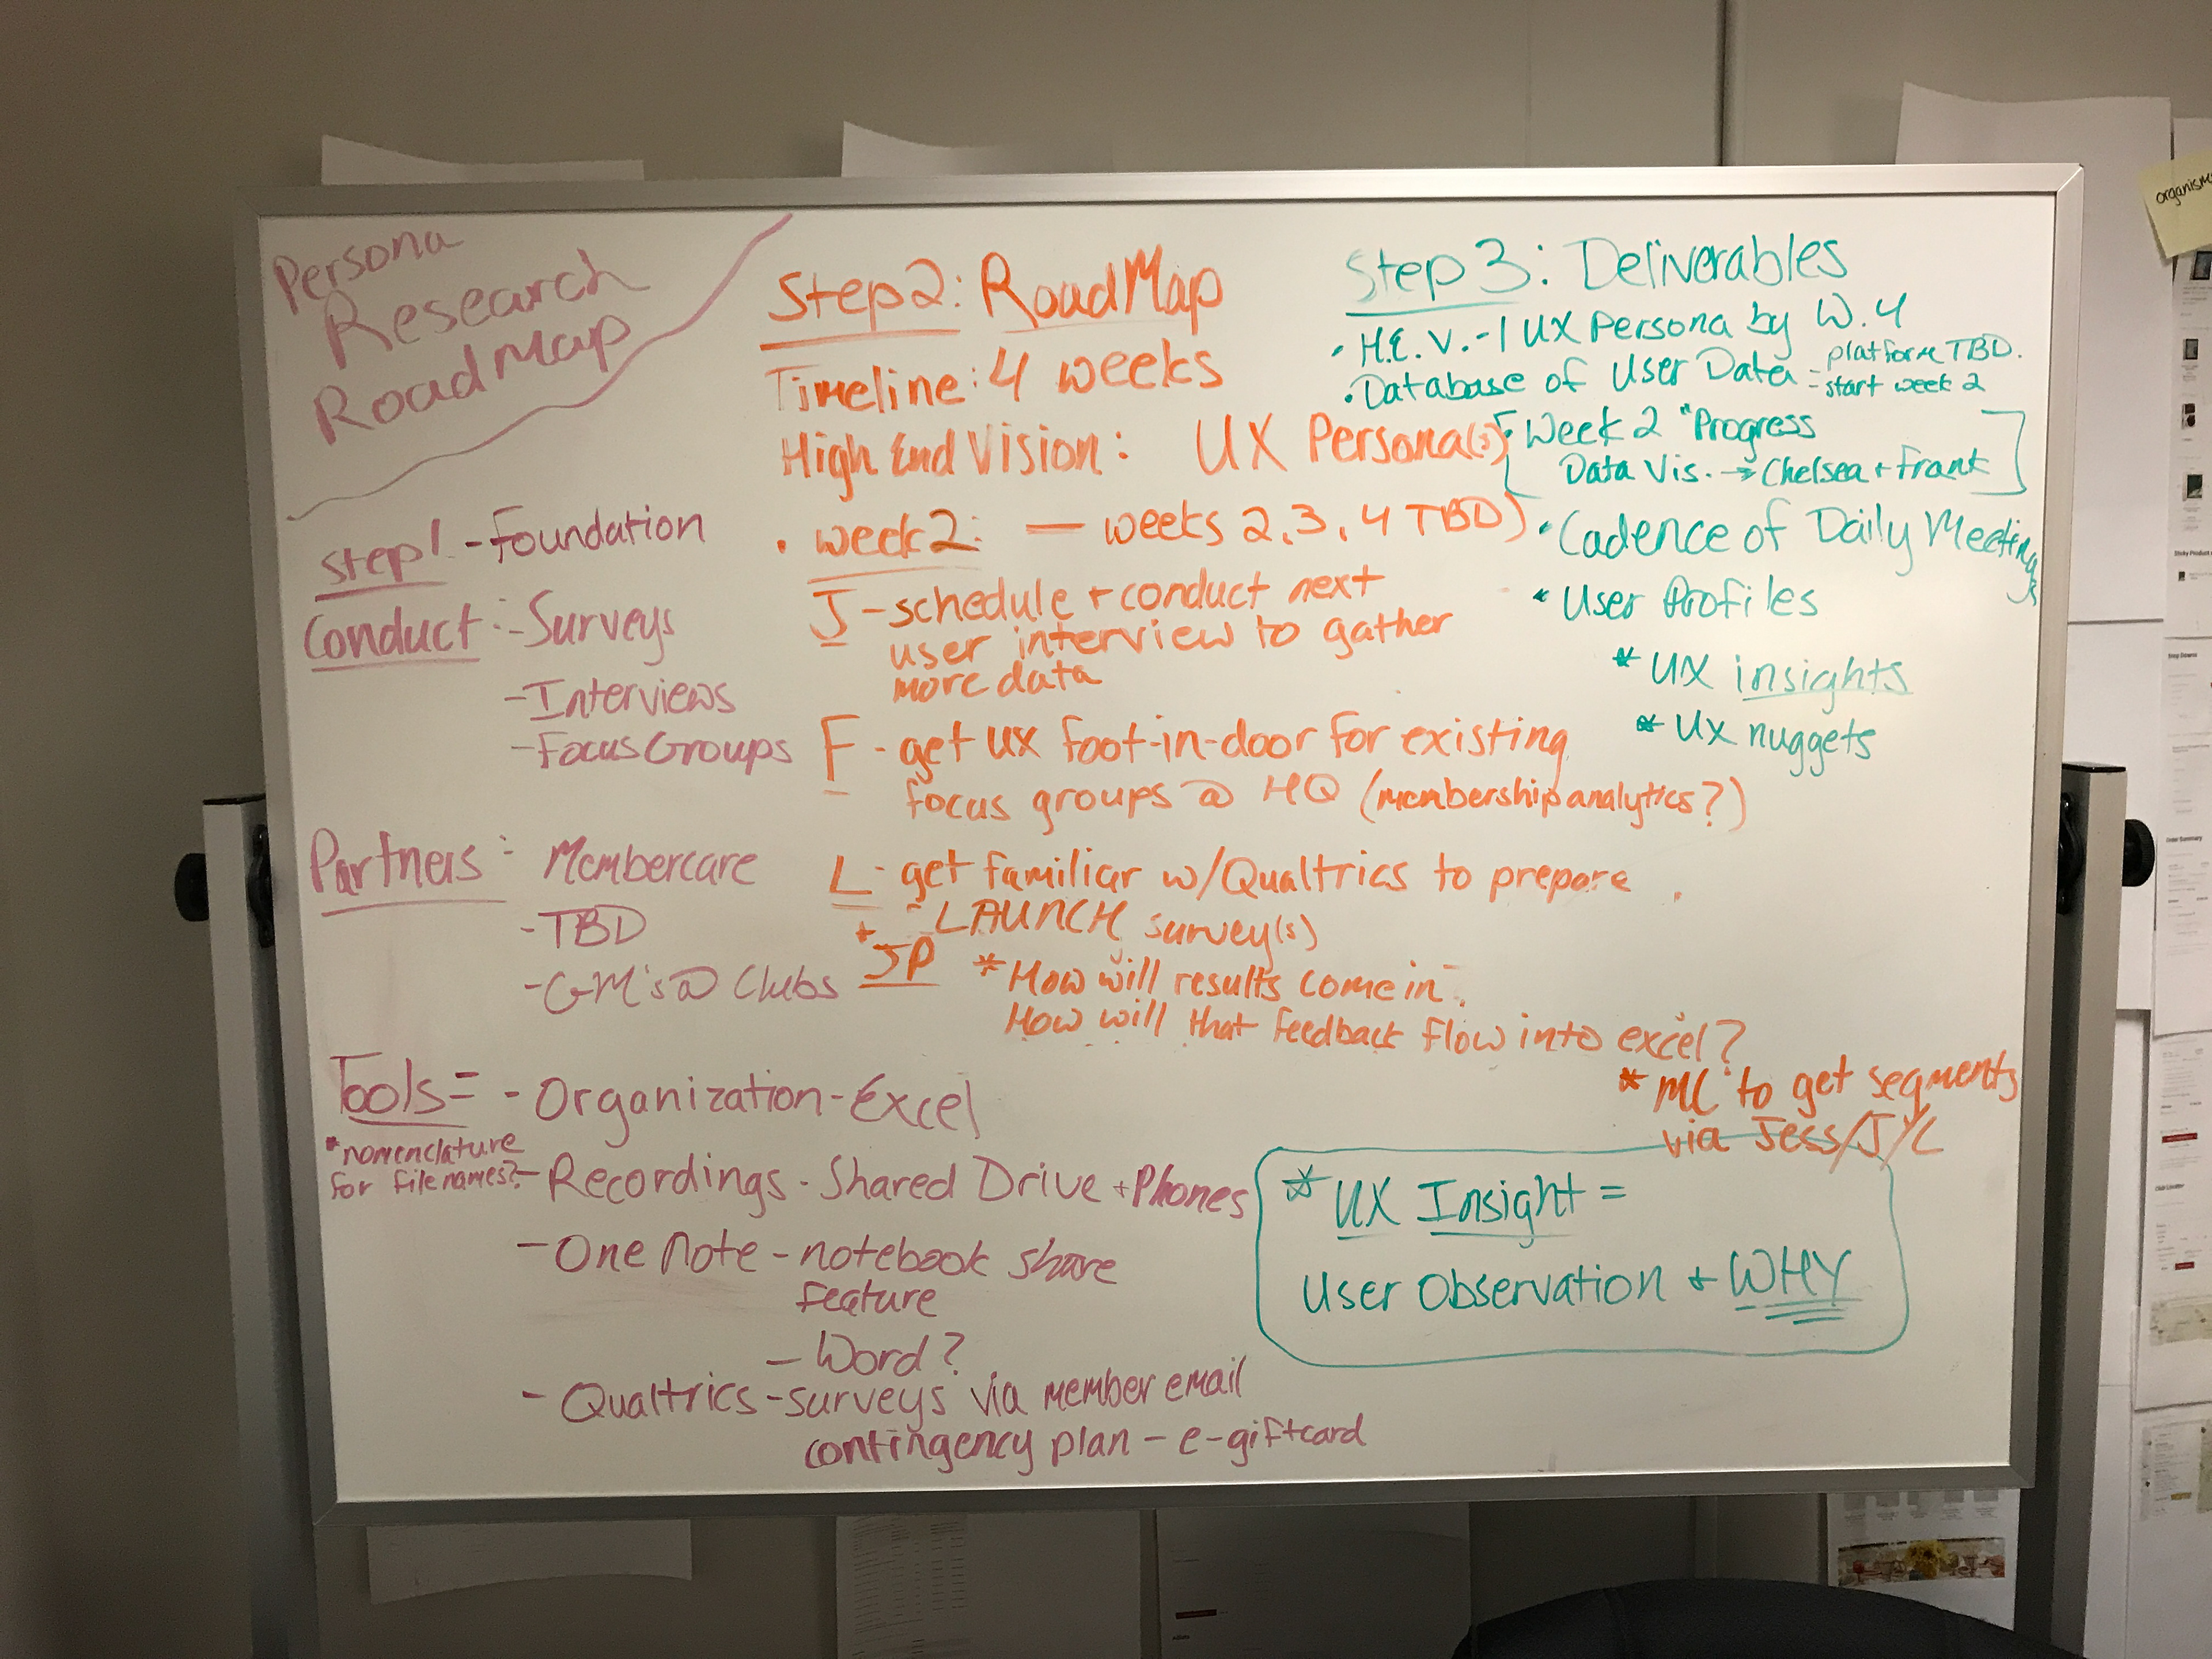 Persona
Research
RoadMap
Step 1 - Foundation
Conduct: - Surveys
- Interviews
- Focus Groups
Partners: Membercare
- TBD
- GM's @ Clubs
Tools = - Organization - Excel
*nomenclature
for filenames?
- Recordings - Shared Drive + Phones
- One Note - notebook share
feature
- Word?
- Qualtrics - surveys via member email
contingency plan - e-giftcard
Step 2: RoadMap
Timeline: 4 weeks
High End Vision: UX Persona(s)
• week 2: — weeks 2, 3, 4 TBD)
J - schedule + conduct next
user interview to gather
more data
F - get UX foot-in-door for existing
focus groups @ HQ (membership analytics?)
L - get familiar w/Qualtrics to prepare
+ - LAUNCH survey(s)
JP * How will results come in.
How will that feedback flow into excel?
* MC to get segments
via Jess/J/L
Step 3: Deliverables
• H.E.V. - 1 UX Persona by W. 4
• Database of User Data - platform TBD.
- start week 2
[• Week 2 "Progress
Data Vis. → Chelsea + Frank]
• Cadence of Daily Meetings
• User Profiles
* UX insights
* UX nuggets
* UX Insight =
User Observation + WHY
organisms